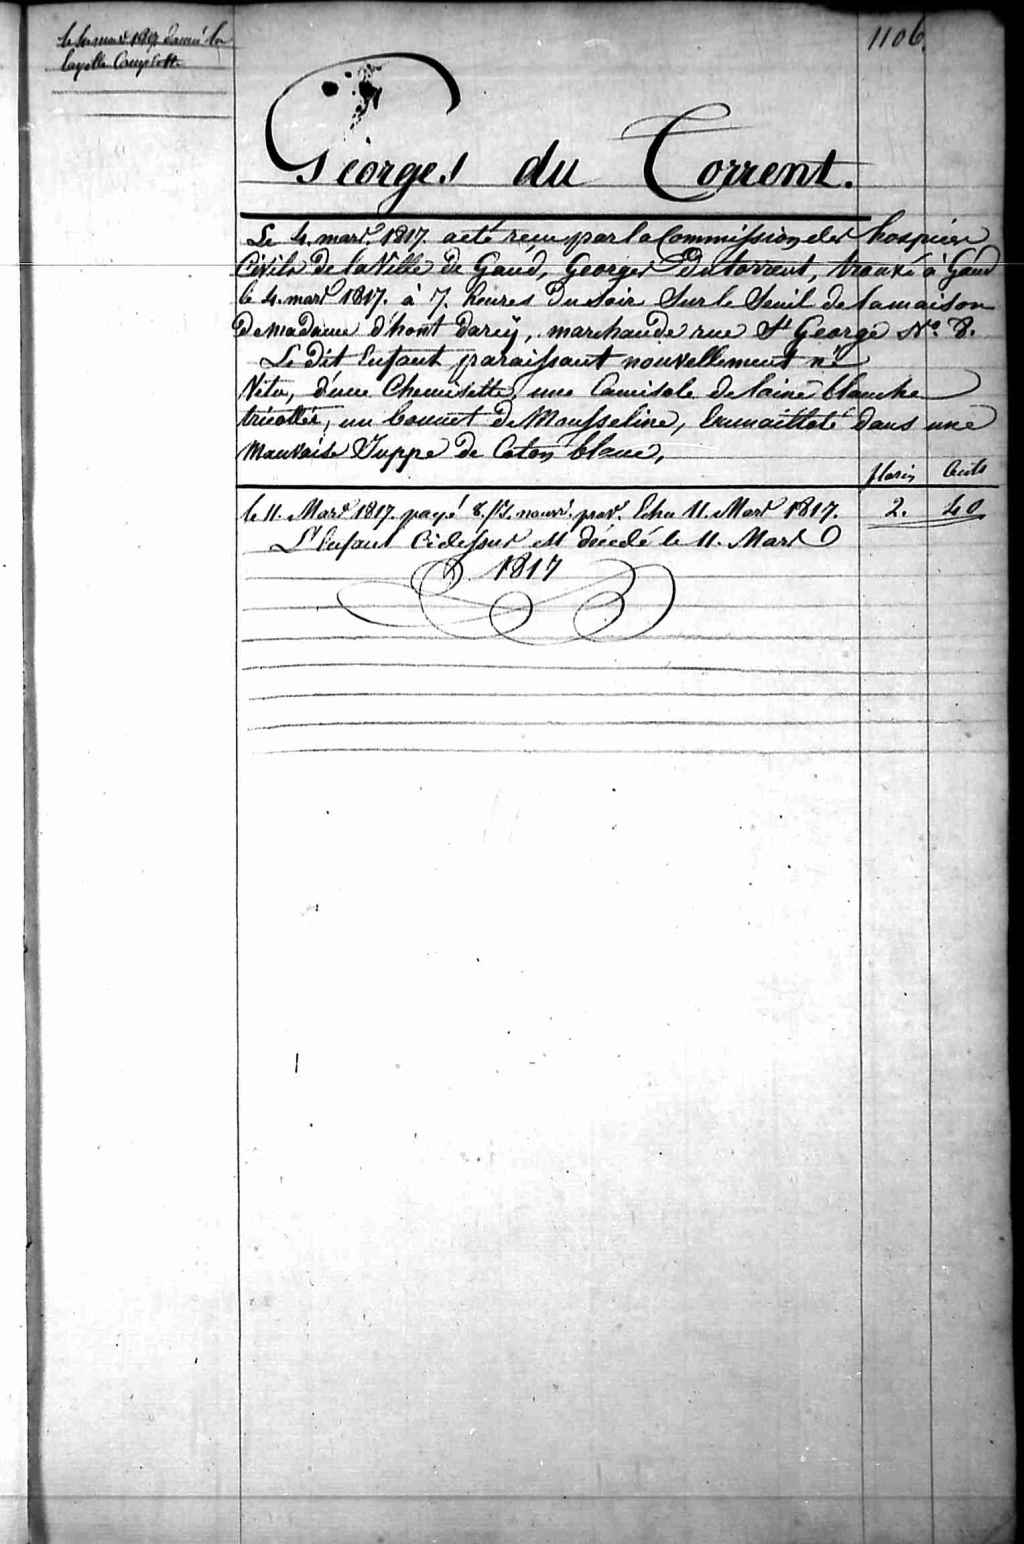 le 4 mars 1817 donné la
layette Complette
1106.
Georges du Torrent.
Le 4. mars. 1817. a eté recu par la Commission des hospices
Civils de la Ville de Gand, Georges Du torrent, trouvé à Gand
le 4. mars 1817. à 7. heures Du soir Sur le Seuil de la maison
De madame d'hont darcy, marchande rue St George No. 8.
Le Dit Enfant paraissant nouvellement né
Vetu, d'une Chemisette, une Camisole de laine blanche
tricottée, un bonnet De Mousseline, Emmailloté dans une
Mauvaise Juppe de Coton blanc,
florins Cents
le 11. Mars 1817. payé 8. js. nourr. prov. Echu 11. Mars 1817. 2. 40
L'Enfant Cidessus est décedé le 11. Mars
1817